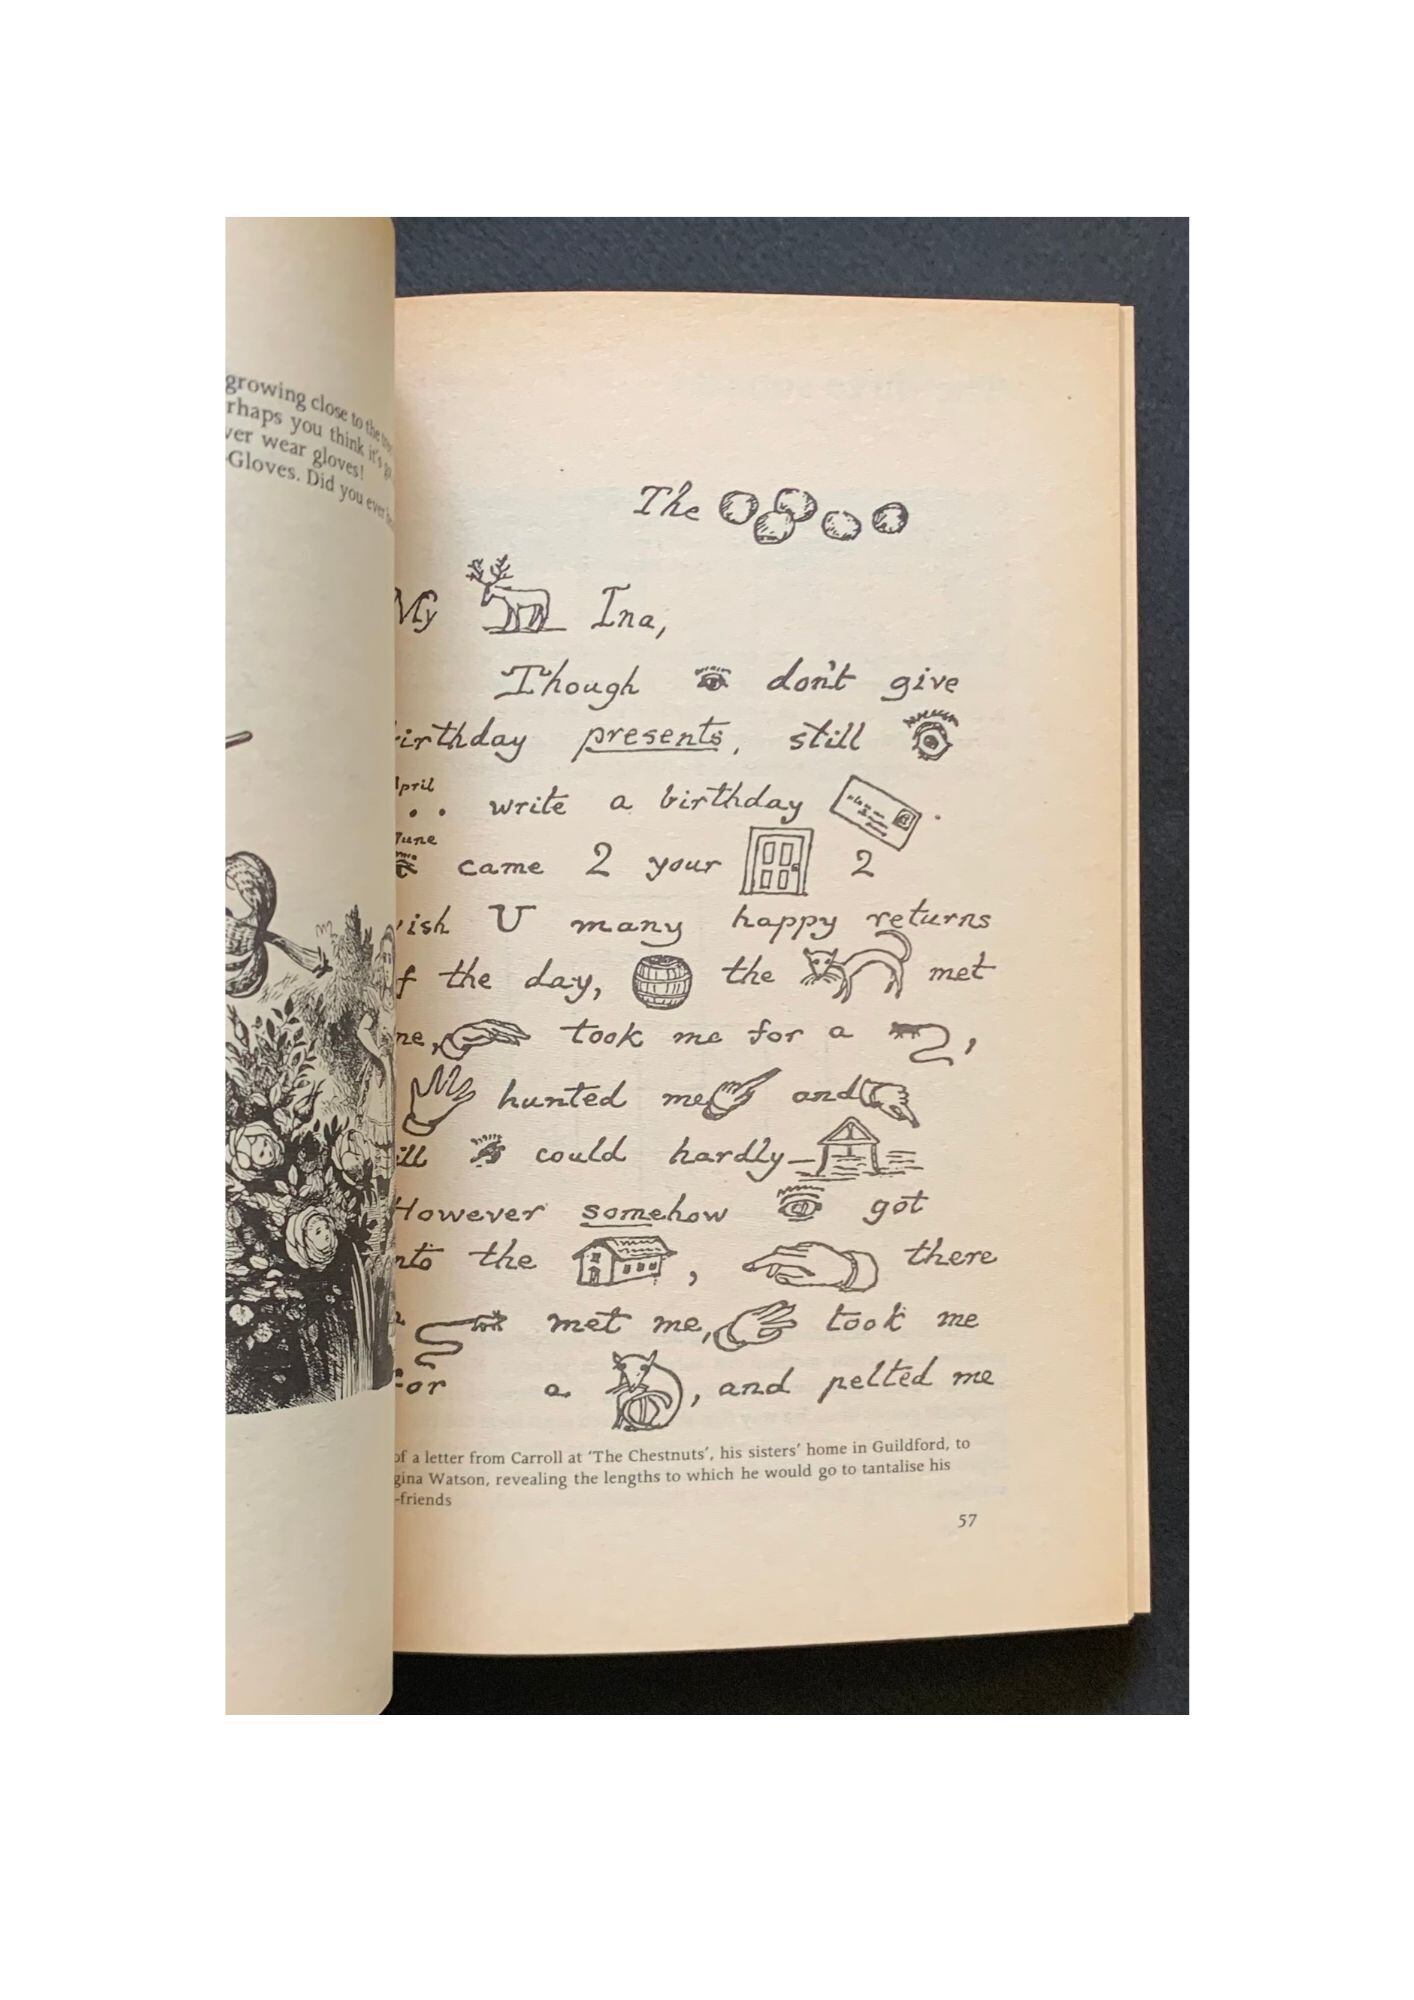 growing close to the
rhaps you think it's
ver wear gloves!
-Gloves. Did you ever
The
My Ina,
Though don't give
irthday presents, still
April
write a birthday .
June
came 2 your 2
ish U many happy returns
f the day, the met
me, took me for a ,
hunted me and
ill could hardly—
However somehow got
nto the , there
a met me, took me
for a , and pelted me
of a letter from Carroll at 'The Chestnuts', his sisters' home in Guildford, to
gina Watson, revealing the lengths to which he would go to tantalise his
-friends
57